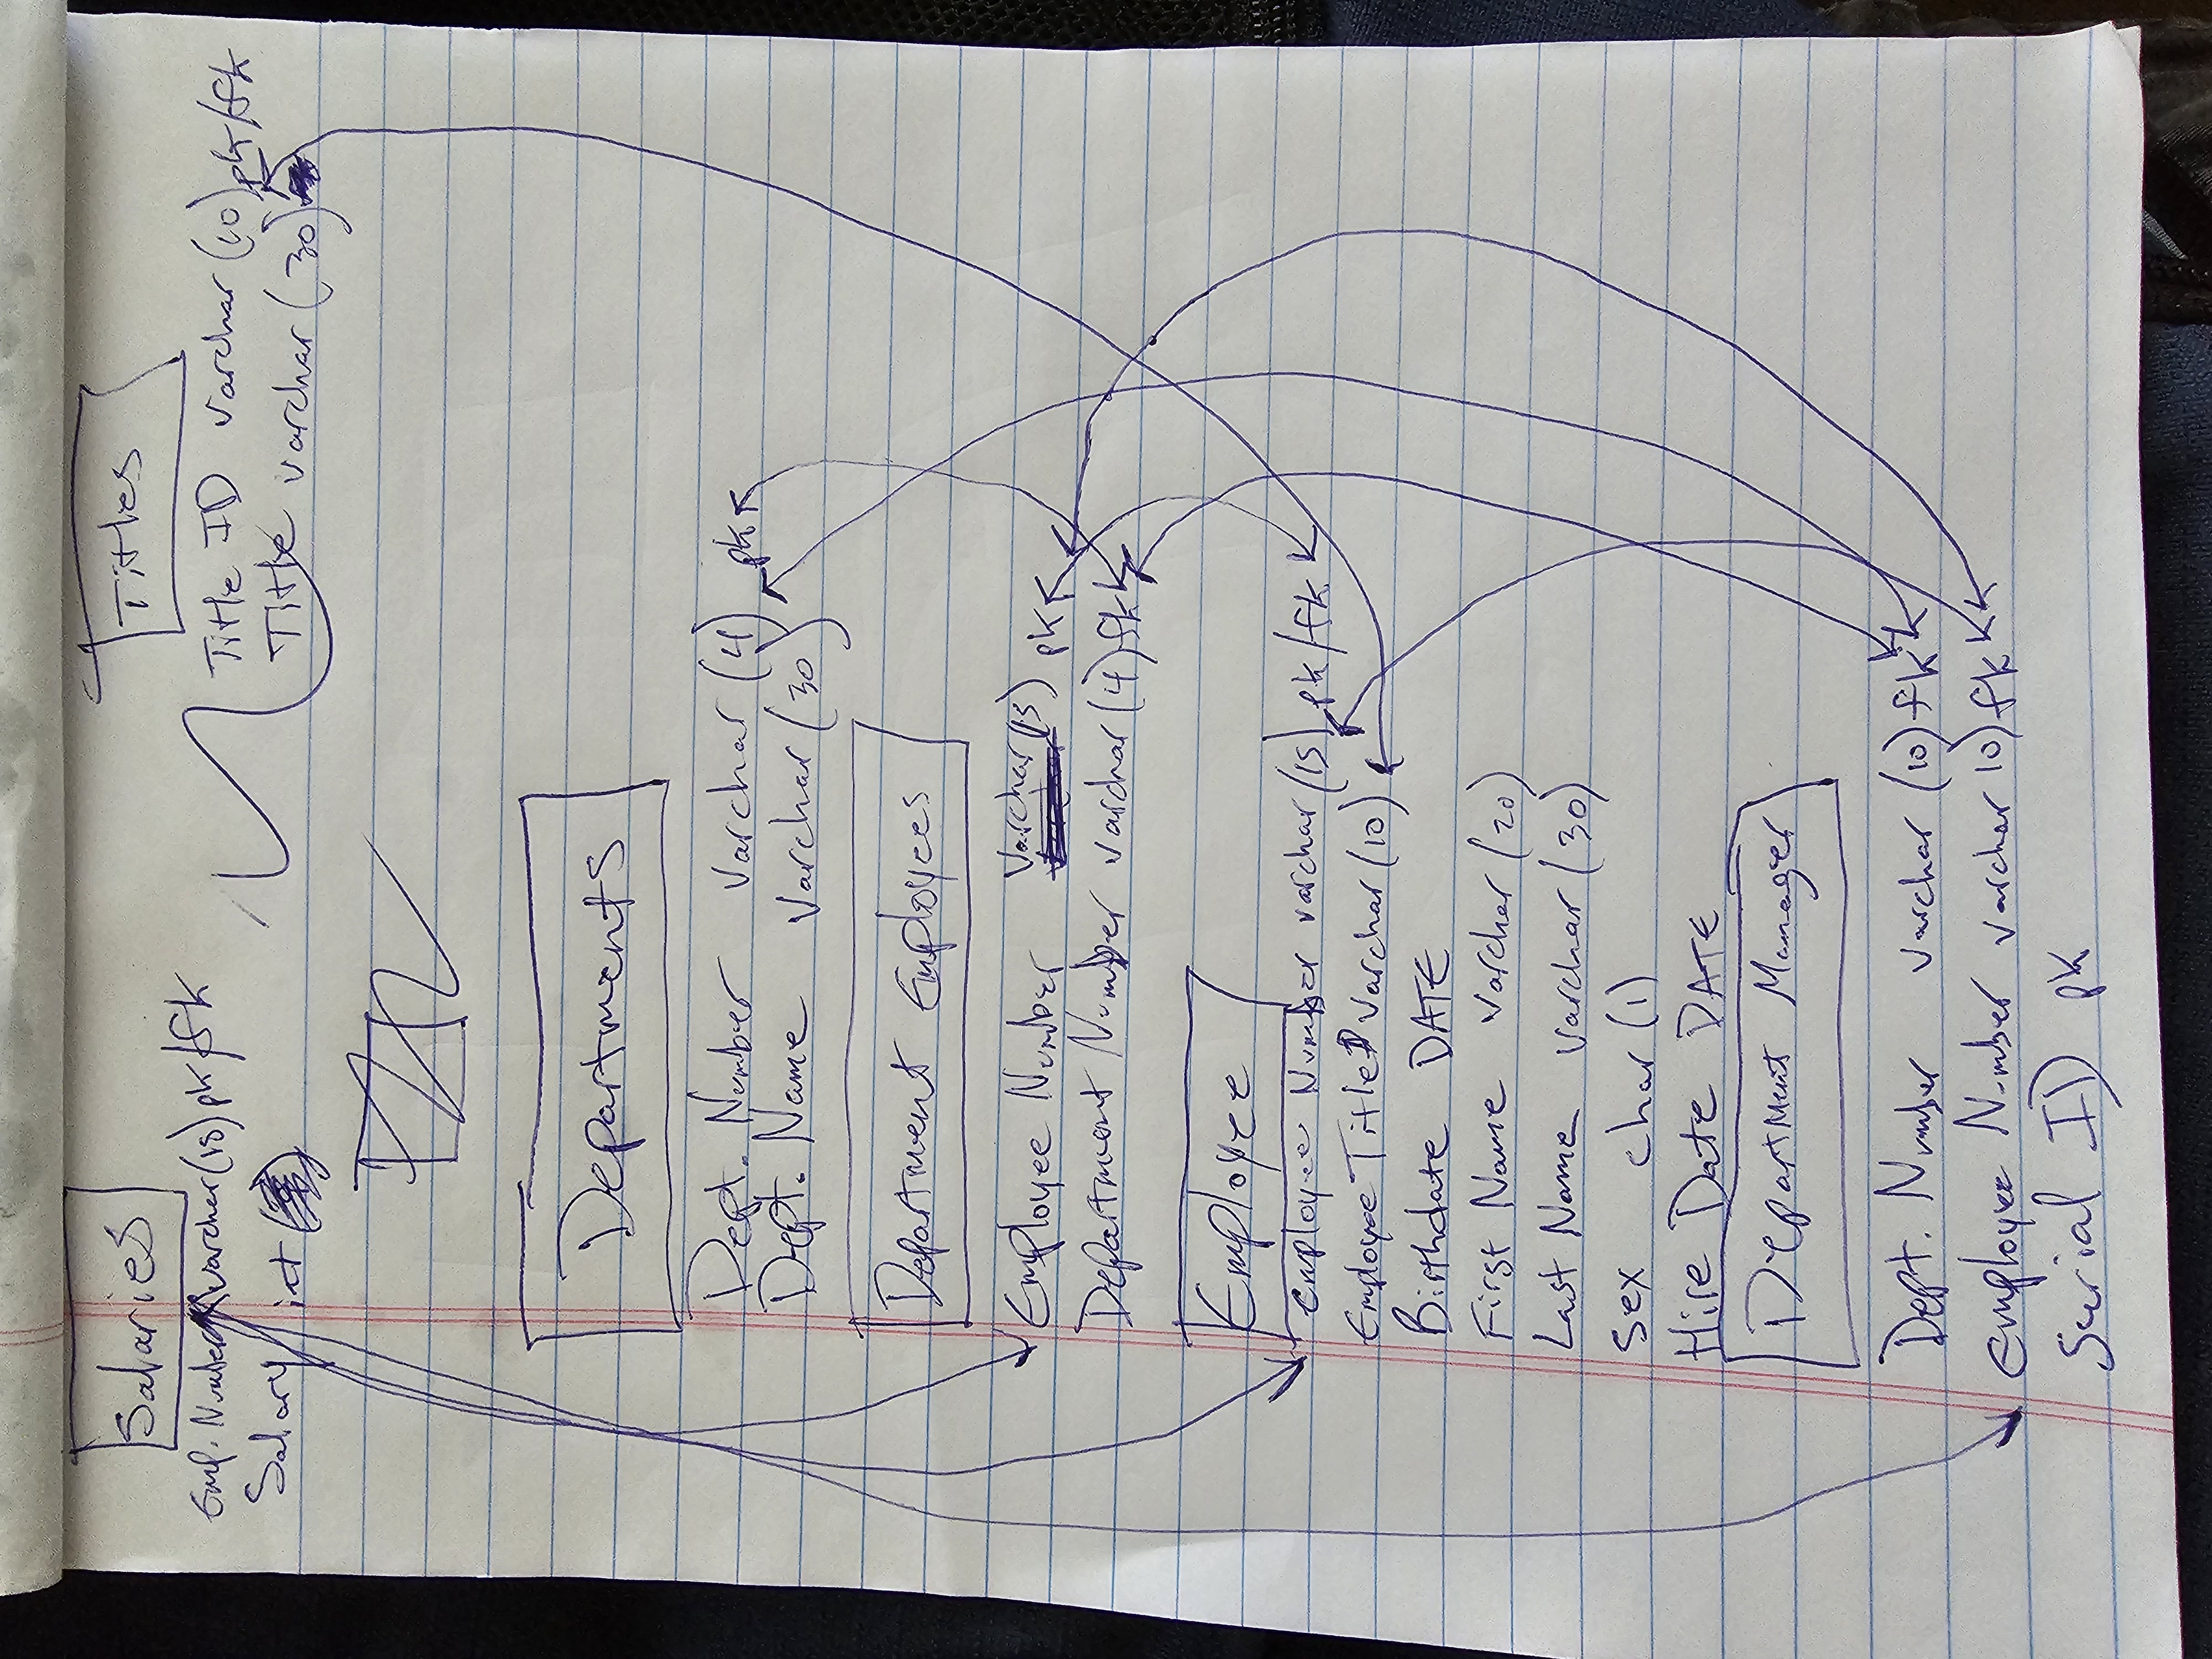 Salaries
Emp. Number varchar(15) pk/fk
Salary int
Titles
Title ID varchar (10) pk/fk
Title varchar (30)
Departments
Dept. Number varchar (4) pk
Dept. Name varchar (30)
Department Employees
Employee Number varchar (15) pk
Department Number varchar (4) fk
Employee
Employee Number varchar (15) pk/fk
Employee Title varchar (10)
Birthdate DATE
First Name varchar (20)
Last Name varchar (30)
Sex char (1)
Hire Date DATE
Department Manager
Dept. Number varchar (10) fk
Employee Number varchar 10) fk
Serial ID pk